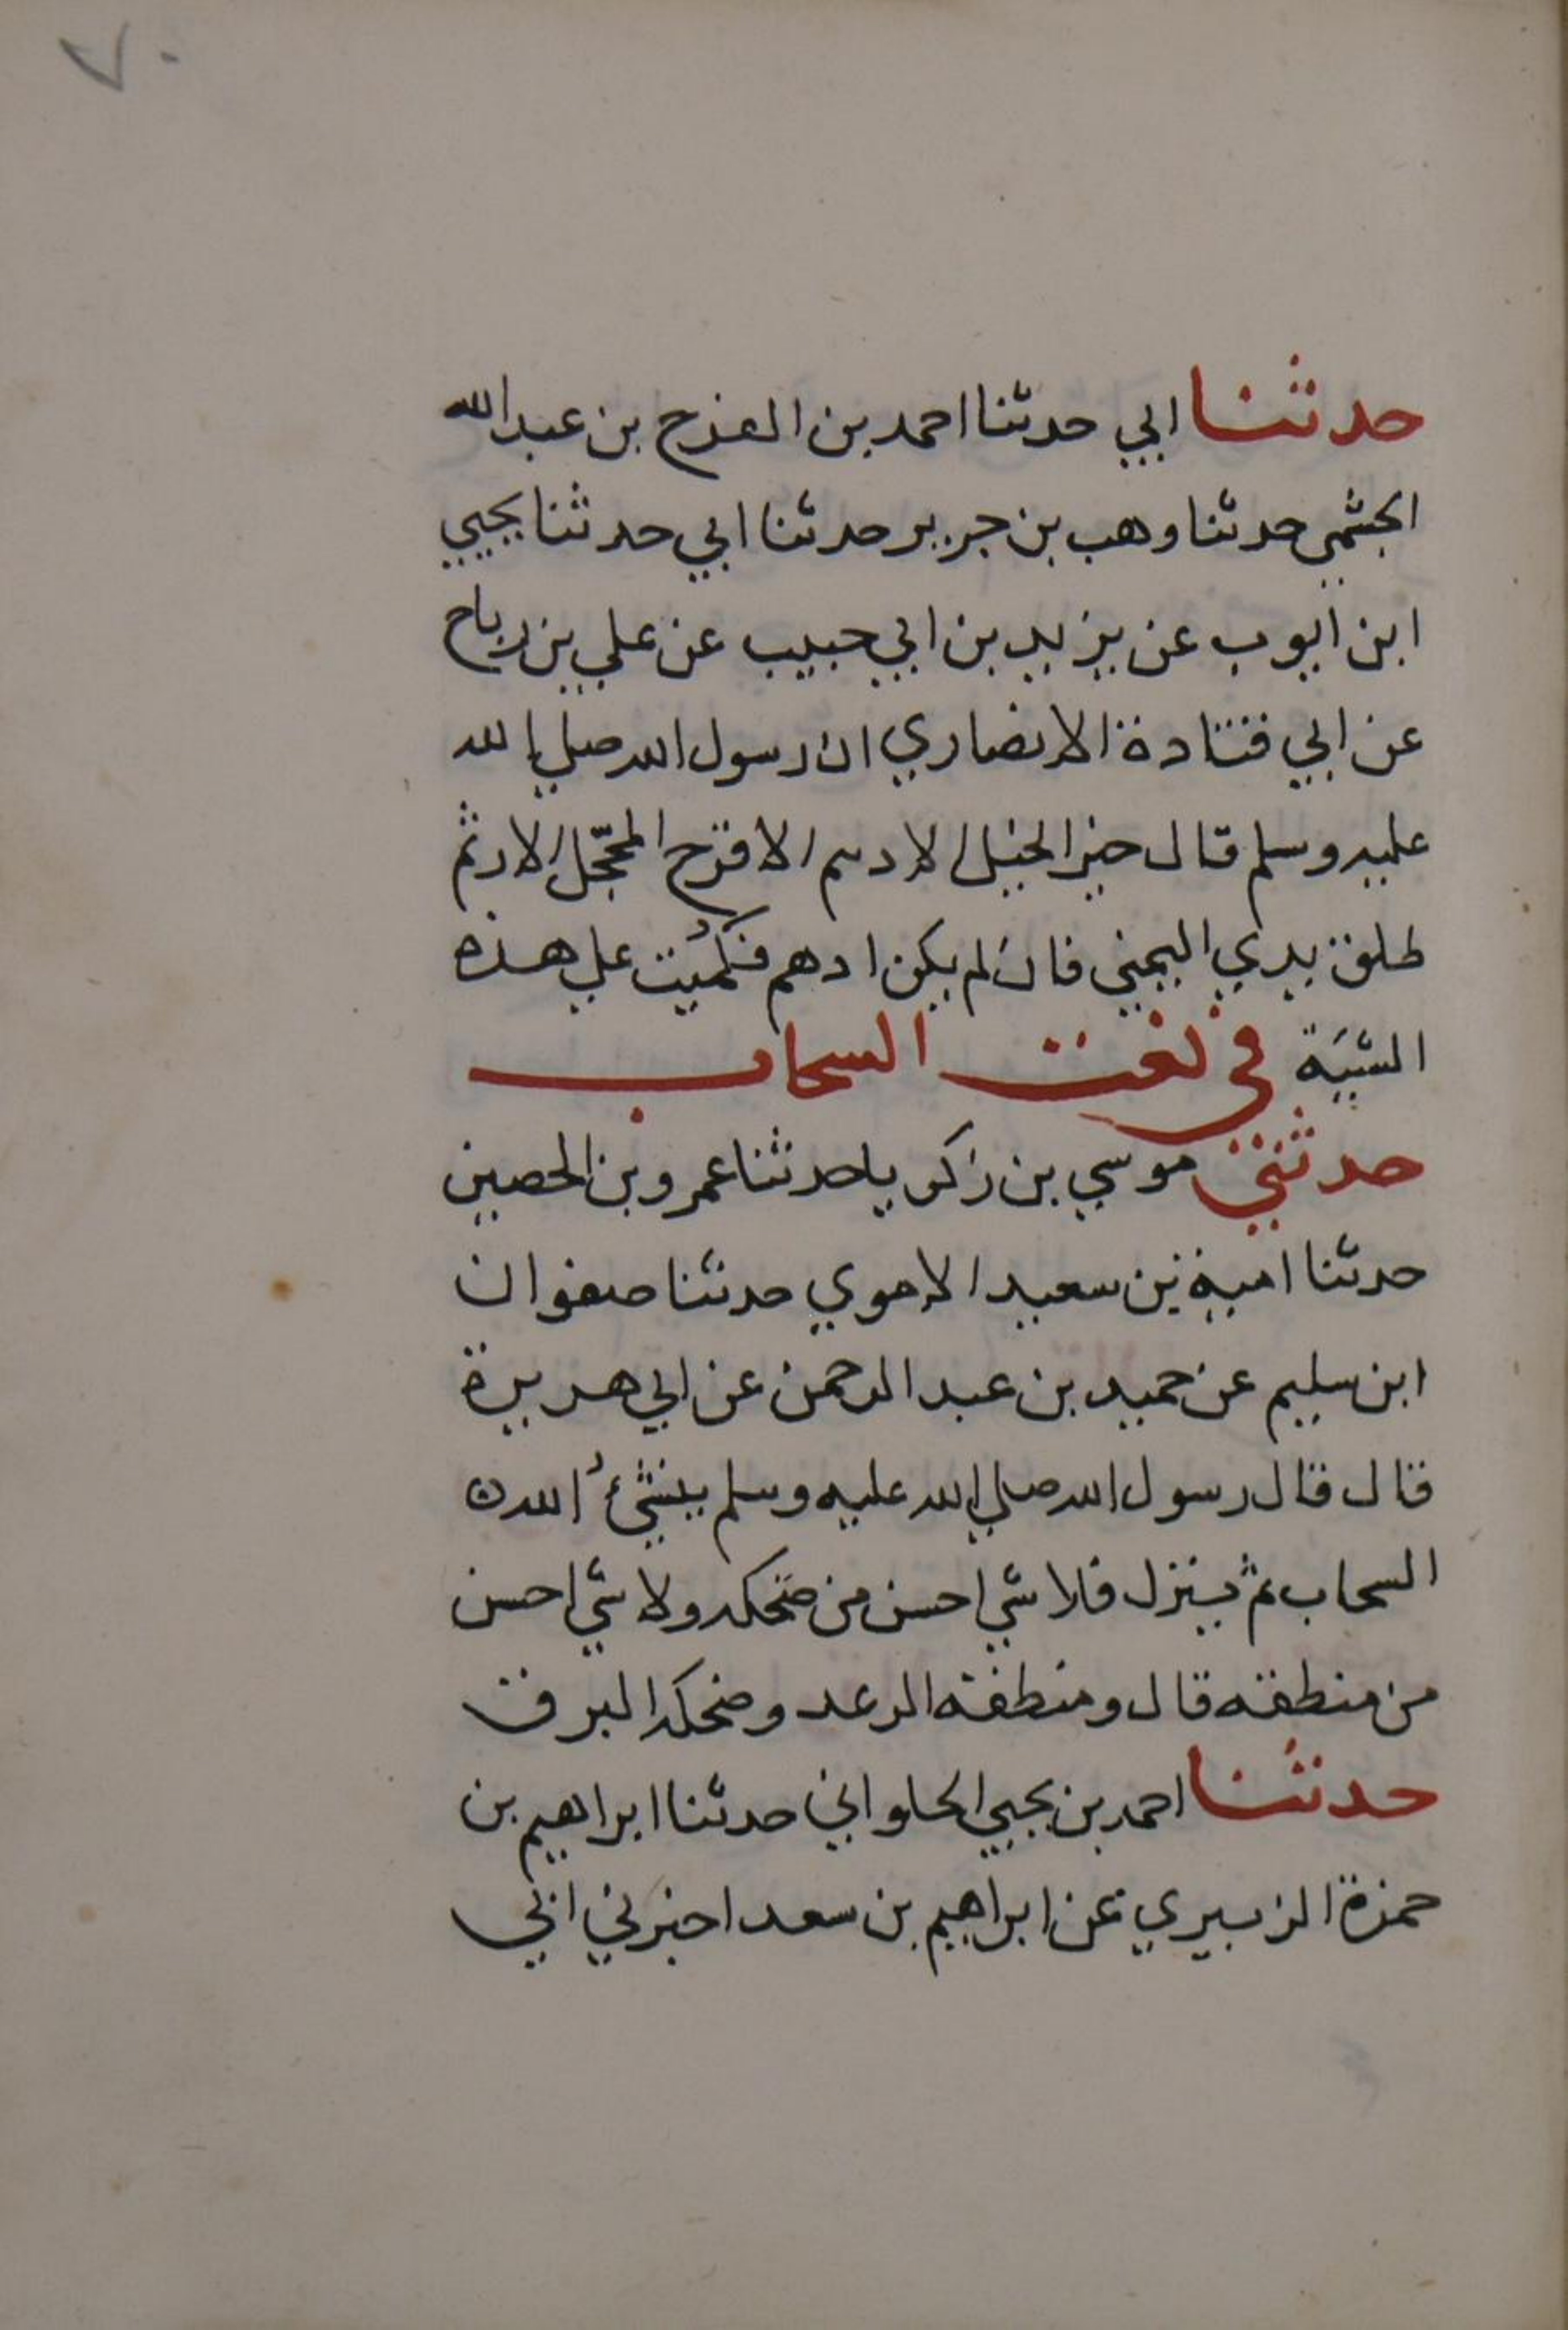 ٧٠
حدثنا ابي حدثنا احمد بن الفرح بن عبد الله
الجشمي حدثنا وهب بن جرير حدثنا ابي حدثنا يحيي
ابن ايوب عن يزيد بن ابي حبيب عن علي بن رباح
عن ابي قتادة الانصاري ان رسول الله صلي الله
عليه وسلم قال خير الخيل الادهم الاقرح المحجّل الارثم
طلق يدي اليمني فان لم يكن ادهم فكُميت علي هذه
الشيَة في نعت السحاب
حدثني موسي بن زكريا حدثنا عمرو بن الحصين
حدثنا امية بن سعيد الاموي حدثنا صفوان
ابن سليم عن حميد بن عبد الرحمن عن ابي هريرة
قال قال رسول الله صلي الله عليه وسلم ينشئُ الله
السحاب ثم ينزل فلا شي احسن من ضحكه ولا شي احسن
من منطقه قال ومنطقه الرعد وضحكه البرق
حدثنا احمد بن يحيي الحلواني حدثنا ابراهيم بن
حمزة الزبيري عن ابراهيم بن سعد اخبرني ابي